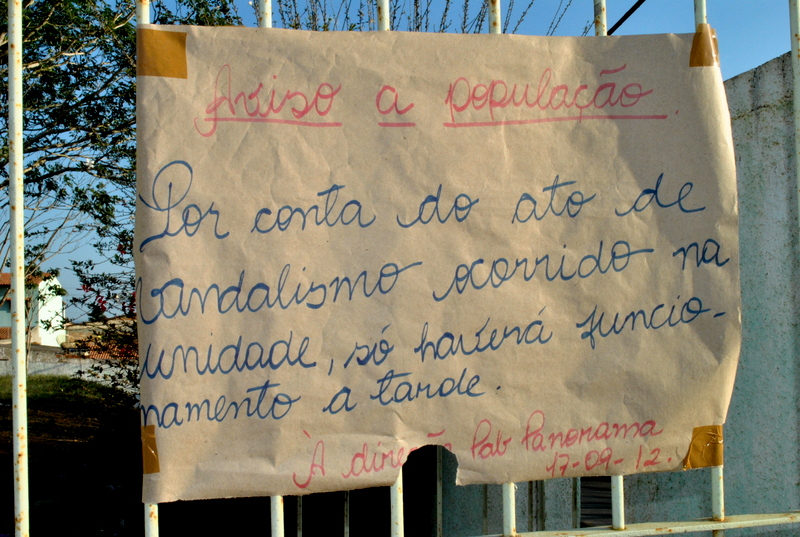 Aviso a população.
Por conta do ato de
vandalismo ocorrido na
unidade, só haverá funcio-
namento a tarde.
À direção Pab Panorama
17-09-12.